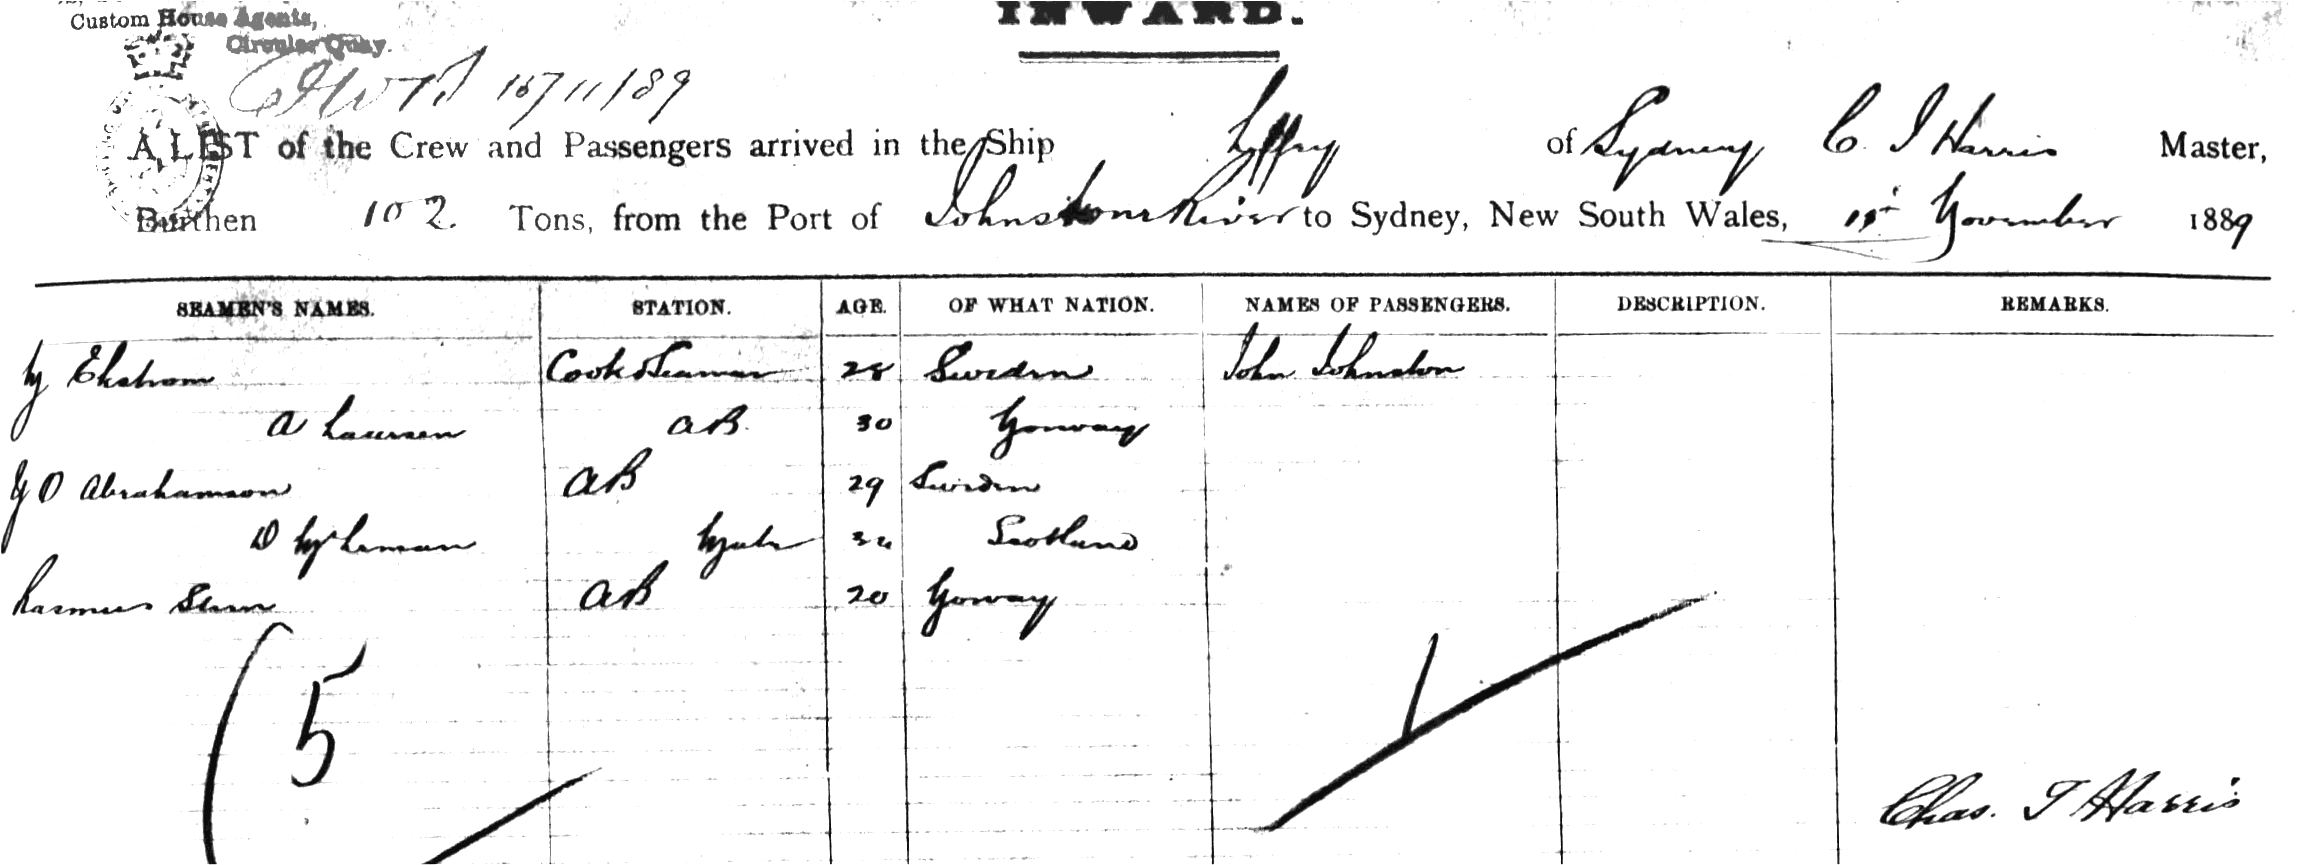 Custom House Agents,
Circular Quay.
INWARD.
/11/89
A LIST of the Crew and Passengers arrived in the Ship of Sydney C. J Harris Master,
Burthen 102. Tons, from the Port of Johnstone River to Sydney, New South Wales, November 1889
SEAMEN'S NAMES. STATION. AGE. OF WHAT NATION. NAMES OF PASSENGERS. DESCRIPTION. REMARKS.
Ekstrom Cook & Seaman 28 Sweden John Johnston
A Laursen AB 30 Norway
O Abrahamson AB 29 Sweden
D Scotland
Rasmus AB 20 Norway
5
1
Chas. T Harris